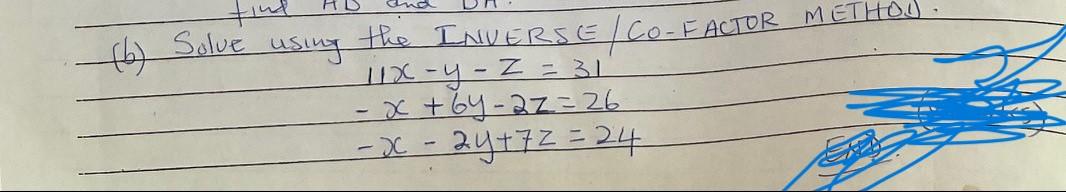 find AB and BA.
(b) Solve using the INVERSE/CO-FACTOR METHOD.
11x - y - z = 31
- x + 6y - 2z = 26
- x - 2y + 7z = 24
END.